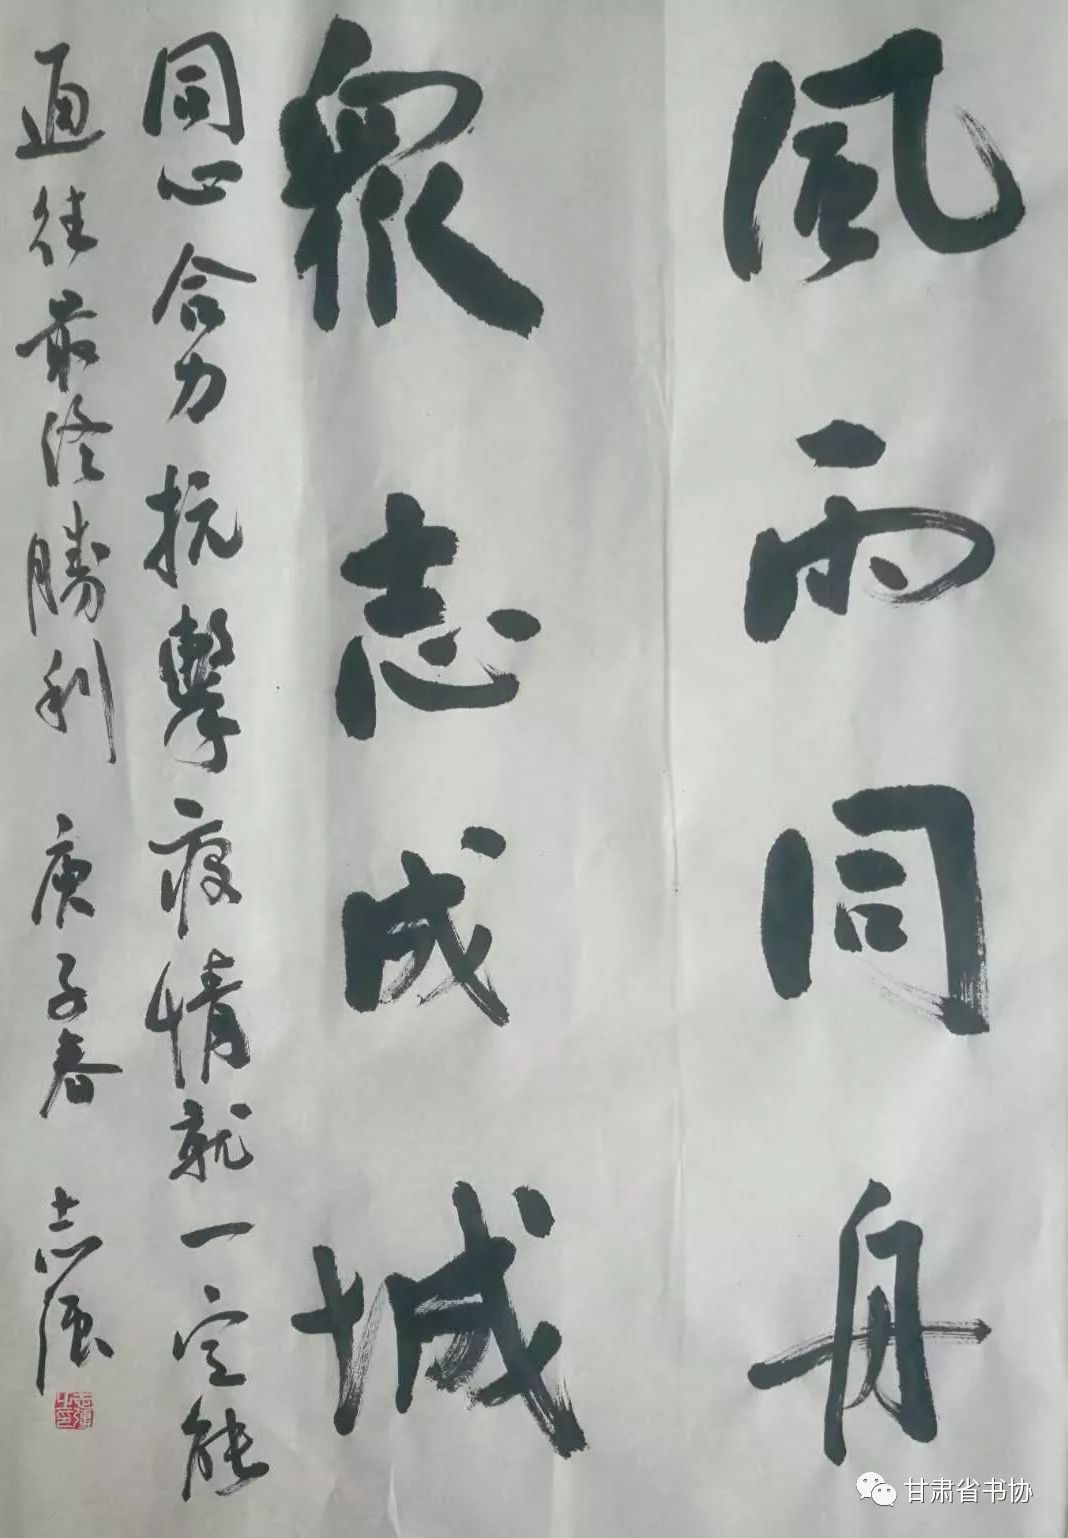 風雨同舟
眾志成城
同心合力抗擊疫情就一定能
通往最终勝利 庚子春 志强
甘肃省书协